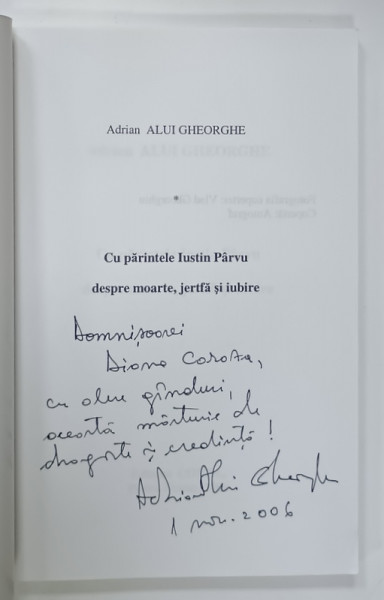 Adrian ALUI GHEORGHE
*
Cu părintele Iustin Pârvu
despre moarte, jertfă și iubire
Domnișoarei
Diana
cu alese gînduri,
această mărturie de
dragoste și credință!
Adrian Alui Gheorghe
1 nov. 2006